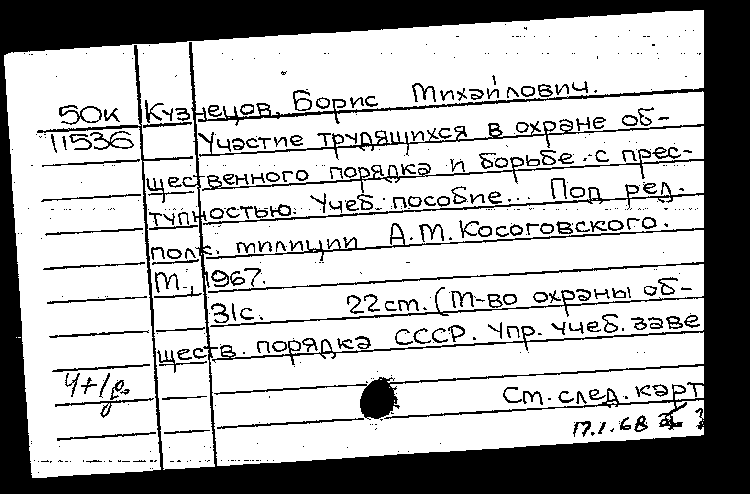 50к Кузнецов, Борис Михайлович.
11536 Участие трудящихся в охране об-
щественного порядка и борьбе с прес-
тупностью. Учеб. пособие... Под ред.
полк. милиции А.М. Косоговского.
М., 1967.
31с. 22см. (М-во охраны об-
ществ. порядка СССР. Упр. учеб. заве
Ч+1р.
См. след. карт
17.1.68